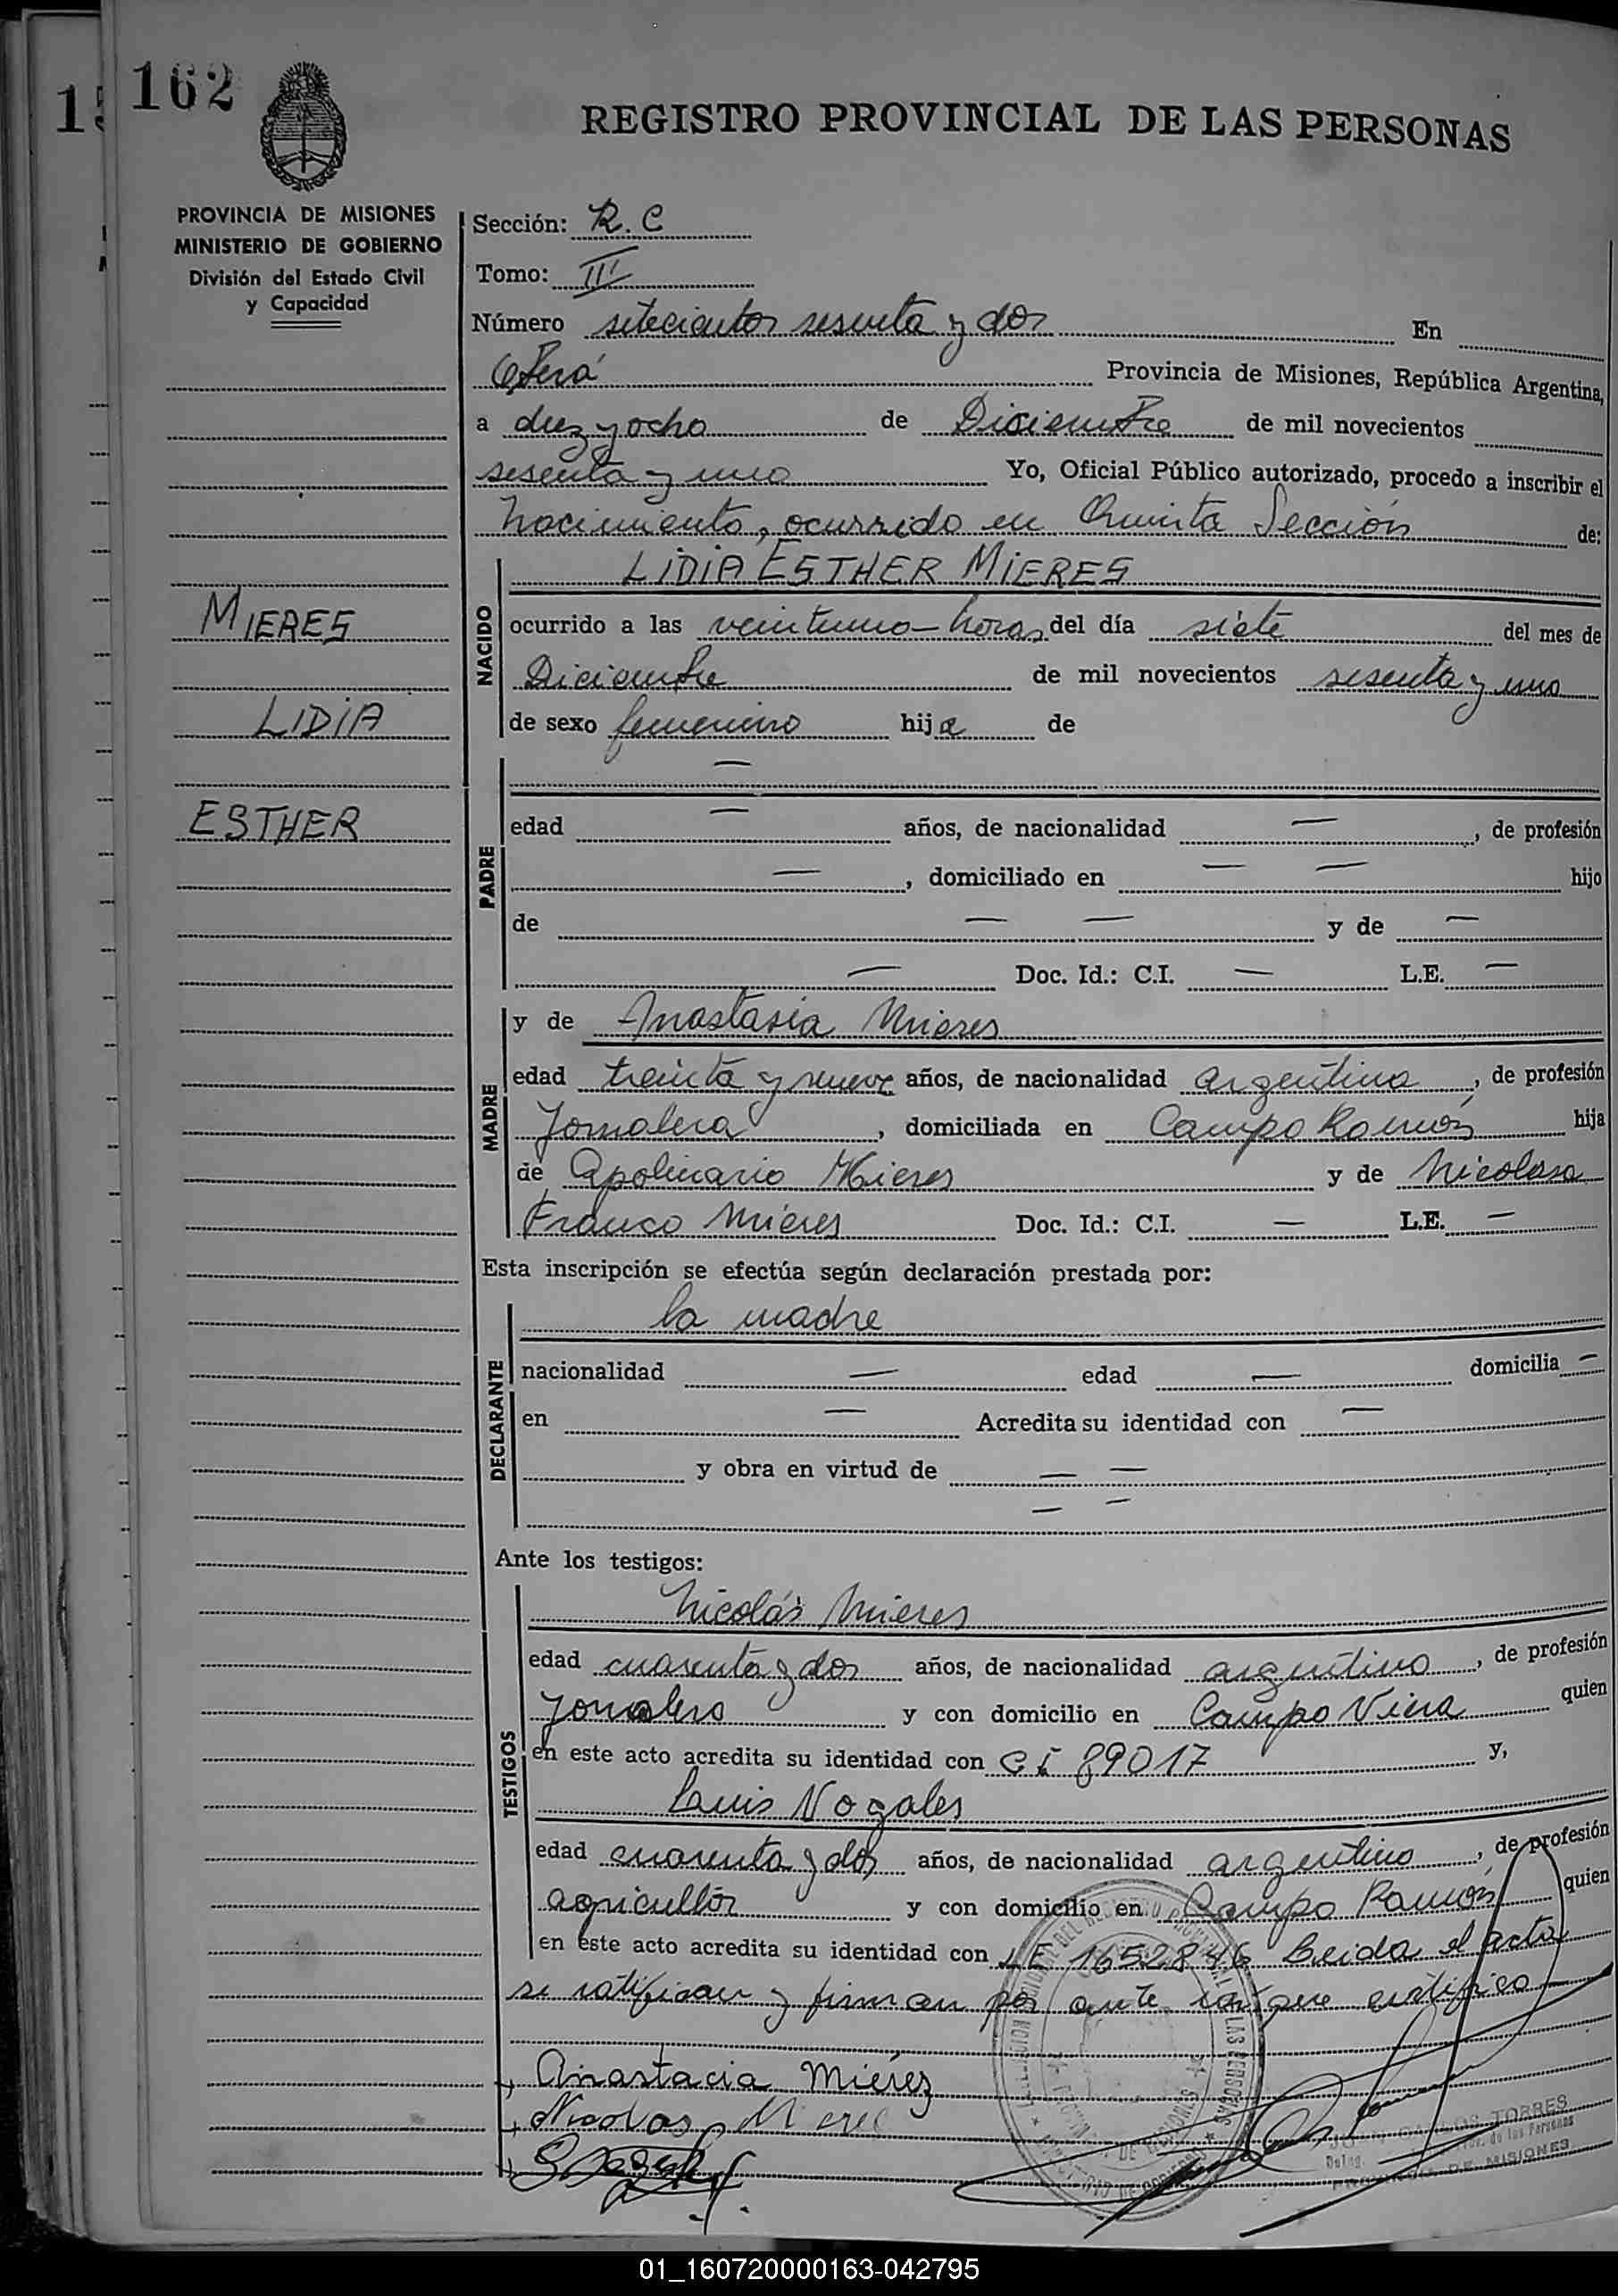 15
162
REGISTRO PROVINCIAL DE LAS PERSONAS
PROVINCIA DE MISIONES
MINISTERIO DE GOBIERNO
División del Estado Civil
y Capacidad
Sección: R. C
Tomo: III
Número setecientos sesenta y dos En
Oberá Provincia de Misiones, República Argentina,
a diez y ocho de Diciembre de mil novecientos
sesenta y uno Yo, Oficial Público autorizado, procedo a inscribir el
Nacimiento, ocurrido en Quinta Sección de:
LIDIA ESTHER MIERES
MIERES
LIDIA
ESTHER
NACIDO
ocurrido a las veintiuno - horas del día siete del mes de
Diciembre de mil novecientos sesenta y uno
de sexo femenino hija de
—
PADRE
edad — años, de nacionalidad —, de profesión
—, domiciliado en — — hijo
de — — y de —
— Doc. Id.: C.I. — L.E. —
MADRE
y de Anastasia Mieres
edad treinta y nueve años, de nacionalidad argentina, de profesión
Jornalera, domiciliada en Campo Ramón hija
de Apolinario Mieres y de Nicolasa
Franco Mieres Doc. Id.: C.I. — L.E. —
Esta inscripción se efectúa según declaración prestada por:
DECLARANTE
la madre
nacionalidad — edad — domicilia —
en — Acredita su identidad con —
y obra en virtud de — —
— —
Ante los testigos:
TESTIGOS
Nicolás Mieres
edad cuarenta y dos años, de nacionalidad argentino, de profesión
Jornalero y con domicilio en Campo Viera quien
en este acto acredita su identidad con CI 89017 y,
Luis Nogales
edad cuarenta y dos años, de nacionalidad argentino, de profesión
agricultor y con domicilio en Campo Ramón quien
en este acto acredita su identidad con LE 1652846 Leida el acta
se ratifican y firman por ante mí que certifico
Anastacia Miérez
Nicolas Miere
CARLOS TORRES
de las Personas
PROVINCIA DE MISIONES
01_160720000163-042795